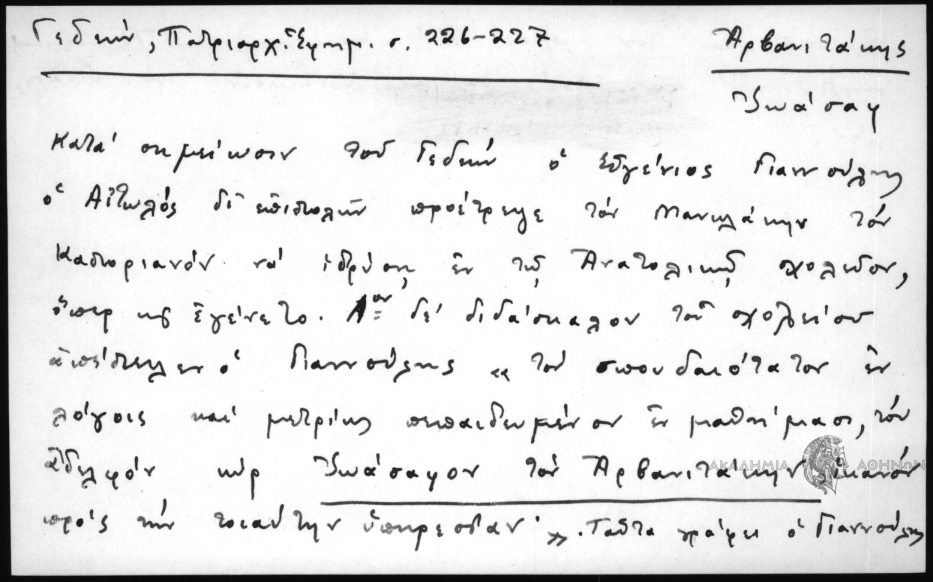 Γεδεών, Πατριαρχ. Ἐφημ. σ. 226-227
Ἀρβανιτάκης
Ἰωάσαφ
Κατά σημείωσιν τοῦ Γεδεών ὁ Εὐγένιος Γιαννούλης
ὁ Αἰτωλός δι' ἐπιστολῶν προέτρεψε τόν Μανωλάκην τόν
Καστοριανόν νά ἱδρύσῃ ἐν τῷ Ἀνατολικῷ σχολεῖον,
ὅπερ καί ἐγένετο. 1ον δέ διδάσκαλον τοῦ σχολείου
ἀπέστειλεν ὁ Γιαννούλης «τόν σπουδαιότατον ἐν
λόγοις καί μετρίως πεπαιδευμένον ἐν μαθήμασι, τόν
ἀδελφόν κύρ Ἰωάσαφον τόν Ἀρβανιτάκην ἱκανόν
πρός τήν τοιαύτην ὑπηρεσίαν». Ταῦτα γράφει ὁ Γιαννούλης
ΑΚΑΔΗΜΙΑ ΑΘΗΝΩΝ